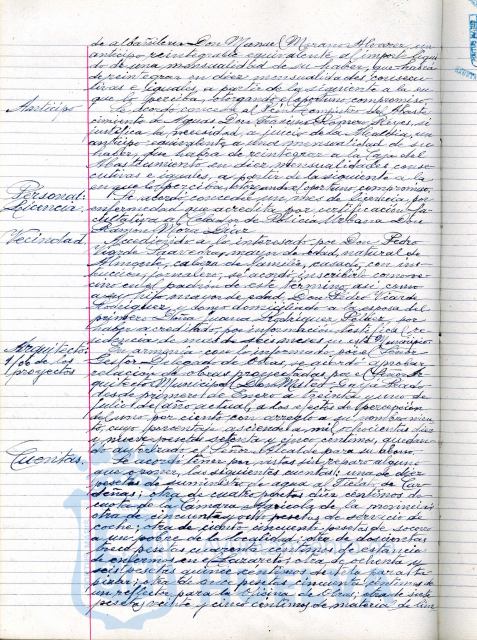 de albañilería Don Manuel Moreno Alvarez, un
anticipo reintegrable equivalente al importe líqui-
do de una mensualidad de su haber, que habrá
de reintegrar en diez mensualidades consecu-
tivas e iguales, a partir de la siguiente a la en
que lo perciba, otorgando el oportuno compromiso.
Anticipo
Se acordó conceder al del Abaste-
cimiento de Aguas Don Francisco Reyes, si
justifica la necesidad, a juicio de la Alcaldía, un
anticipo equivalente a una mensualidad de su
haber, que habrá de reintegrar a la Caja del
Abastecimiento en diez mensualidades conse-
cutivas e iguales, a partir de la siguiente a la
en que lo perciba, otorgando el oportuno compromiso.
Personal:
Licencia.
Se acordó conceder un mes de licencia, por
enfermedad que acredita por certificación fa-
cultativa al de Policía Urbana Don
Ramón Mora Díaz
Vecindad.
Accediendo a lo interesado por Don Pedro
mayor de edad, natural de
cabeza de familia, casado, con ins-
trucción, jornalero, se acordó inscribirlo como ve-
cino en el padrón de este término, así como
a su hijo, mayor de edad, Don Pedro
Rodríguez, y como domiciliada a la esposa del
primero Doña Rodríguez por
haber acreditado, por información testifical, re-
sidencia de más de dos meses en este Municipio
Arquitecto:
1% de los
proyectos
En armonía con lo informado por el Señor
Gestor Delegado de Obras, se acordó aprobar
relación de obras proyectadas por el Señor Ar-
quitecto Municipal Don
desde primero de Enero a treinta y uno de
Julio del año actual, a los efectos de percepción
del uno por ciento con arreglo a su nombramien-
to, cuyo porcentaje asciende a mil ochocientas diez
y nueve pesetas setenta y cinco céntimos, quedan-
do autorizado el Señor Alcalde para su abono.
Cuentas.
Se acordó tener por vistas sin reparo alguno
que oponer, las siguientes cuentas: una de diez
pesetas de suministro de agua al de Car-
deñas; otra de cuatro pesetas diez céntimos de
cuota de la Cámara Agrícola de la provincia;
otra de cincuenta y seis pesetas de servicio de
coche; otra de ciento cincuenta pesetas de socorro
a un pobre de la localidad; otra de doscientas
trece pesetas cuarenta céntimos de estancia
de enfermos en Lazareto; otra de ochenta y
seis pesetas quince céntimos de tela para tra-
; otra de once pesetas cincuenta céntimos de
un reflector para la Oficina de Obras; otra de siete
pesetas veinte y cinco céntimos de material de lim-